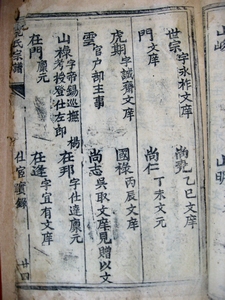 世宗 字永祚文庠 尚堯 乙巳文庠
門 文庠 尚仁 丁未文元
虎期 字誠齋文庠 國祿 丙辰文庠
雲 官户部主事 尚志 吳取文庠見贈以文
山祿 字帝錫巡撫楊考授登仕左郎 在邦 字仕達廩元
在門 廩元 在逢 字宜有文庠
氏宗譜 仕宦 錄 廿四